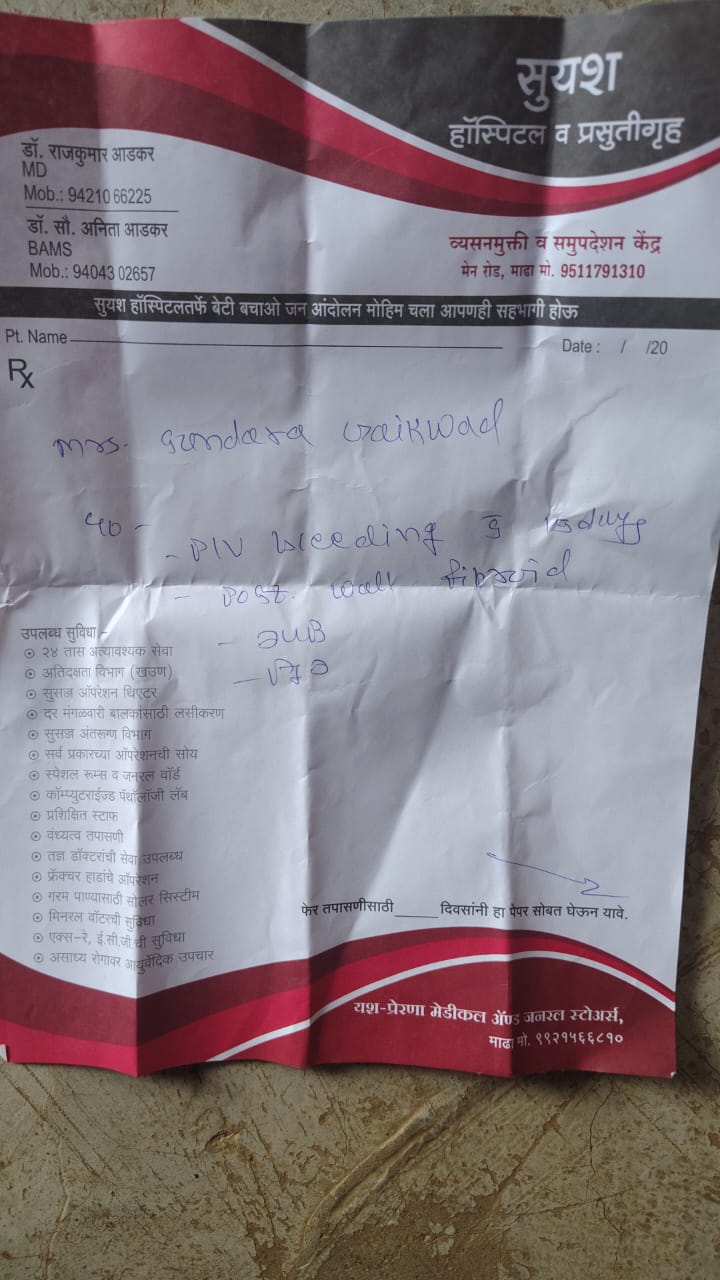 सुयश
हॉस्पिटल व प्रसुतीगृह
डॉ. राजकुमार आडकर
MD
Mob.: 94210 66225
डॉ. सौ. अनिता आडकर
BAMS
Mob.: 94043 02657
व्यसनमुक्ती व समुपदेशन केंद्र
मेन रोड, माढा मो. 9511791310
सुयश हॉस्पिटलतर्फे बेटी बचाओ जन आंदोलन मोहिम चला आपणही सहभागी होऊ
Pt. Name
Date : / /20
Rx
Mrs. Gaikwad
- P/V bleeding days
- Post. wall fibroid
- DUB
उपलब्ध सुविधा -
२४ तास अत्यावश्यक सेवा
अतिदक्षता विभाग (खउण)
सुसज्ज ऑपरेशन थिएटर
दर मंगळवारी बालकांसाठी लसीकरण
सुसज्ज अंतरूग्ण विभाग
सर्व प्रकारच्या ऑपरेशनची सोय
स्पेशल रूम्स व जनरल वॉर्ड
कॉम्प्युटराईज्ड पॅथॉलॉजी लॅब
प्रशिक्षित स्टाफ
वंध्यत्व तपासणी
तज्ञ डॉक्टरांची सेवा उपलब्ध
फ्रॅक्चर हाडांचे ऑपरेशन
गरम पाण्यासाठी सोलर सिस्टीम
मिनरल वॉटरची सुविधा
एक्स-रे, ई.सी.जी.ची सुविधा
असाध्य रोगावर आयुर्वेदिक उपचार
फेर तपासणीसाठी _____ दिवसांनी हा पेपर सोबत घेऊन यावे.
यश-प्रेरणा मेडीकल ॲण्ड जनरल स्टोअर्स,
माढा मो. ९९२१५६६८१०